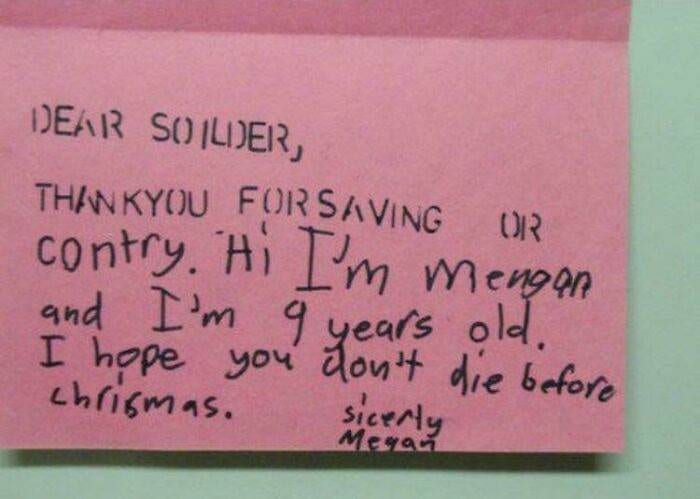 DEAR SOILDER,
THANKYOU FOR SAVING OR
contry. Hi I'm Mengan
and I'm 9 years old.
I hope you don't die before
chrismas.
sicerly
Megan